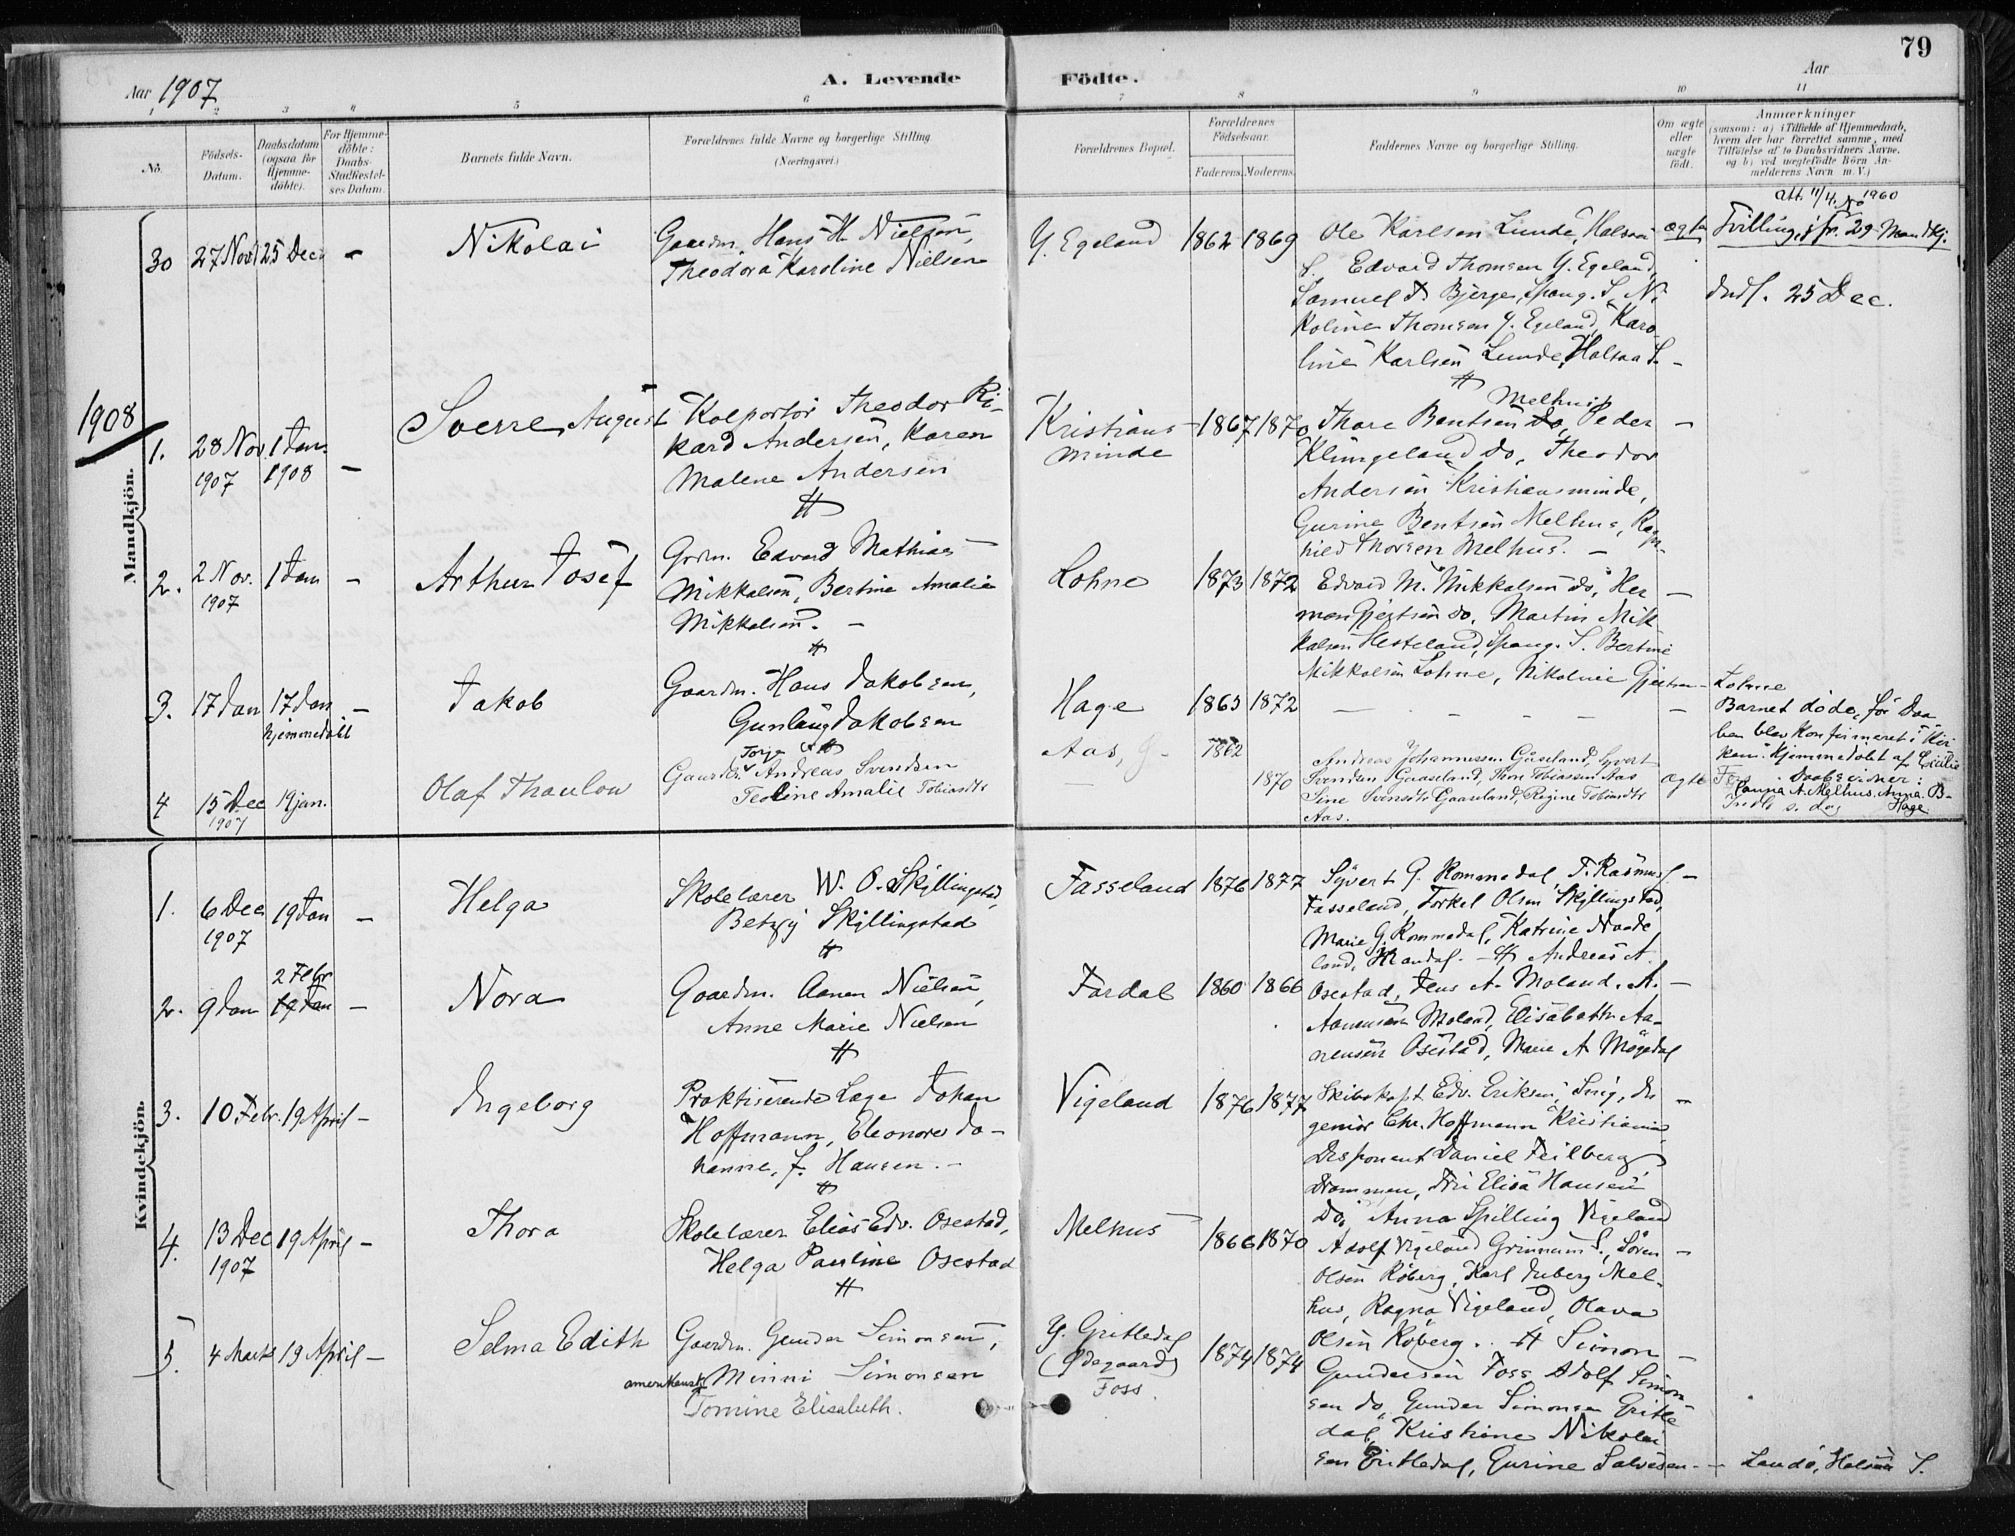 79
Aar 1907
A. Levende Födte.
Aar
1 2 3 4 5 6 7 8 9 10 11
No.
Födsels-Datum.
Daabsdatum (ogsaa for Hjemme-döbte).
For Hjemme-döbte: Daabs-Stadfæstel-ses Datum.
Barnets fulde Navn.
Forældrenes fulde Navne og borgerlige Stilling
(Næringsvei.)
Forældrenes Bopæl.
Forældrenes Födselsaar.
Faderens. Moderens.
Faddernes Navne og borgerlige Stilling.
Om ægte eller uægte födt.
Anmærkninger
(saasom: a) i Tilfælde af Hjemmedaab, hvem der har forrettet samme, med Tilföielse af to Daabsvidners Navne, og b) ved uægtefödte Börn Anmelderens Navn m. V.)
Att. 11/4 1960
30 27 Nov 25 Dec. - Nikolai
Gaardm. Hans H. Nielsen,
Theodora Karoline Nielsen
Y. Egeland 1862 1869
Ole Karlsen Lunde, Halsaa
S. Edvard Thomsen Y. Egeland,
Samuel Bjerge, Spang. S, Ni-
koline Thomsen Y. Egeland, Karo-
line Karlsen Lunde, Halsaa S. -
ægte
Tvilling, jfr. No 29 Mandkj.
Indf. 25 Dec.
1908
Mandkjön.
1. 28 Nov. 1907 1 Jan. 1908 - Sverre August
Kolportör Theodor Ri-
kard Andersen, Karen
Malene Andersen
Kristians-
minde
1867 1870
Melhus
Thore Bentsen Do, Peder -
Klungeland Do, Theodor
Andersen Kristiansminde,
Gurine Bentsen Melhus, Ragn-
hild Thorsen Melhus. -
2. 2 Nov. 1907 1 Jan - Arthur Josef
Grdm. Edvard Mathias
Mikkelsen, Bertine Amalie
Mikkelsen. -
Lohne 1873 1872
Edvard M. Mikkelsen do, Her- -
man Gjertsen do, Martin Mik
kelsen Hesteland, Spang. S. Bertine
Mikkelsen Lohne, Nikoline Gjertsen - Lohne
3. 17 Jan 17 Jan hjemmedöbt - Jakob
Gaardm. Hans Jakobsen,
Gunlaug Jakobsen
Hage 1865 1872 - - - - - -
Barnet döde, för Daa
ben blev konfirmeret i Kir
ken. Hjemmedöbt af Cecilie
Foss. Daabsvidner:
Hanna A. Melhus, Anna B.
Hage.
4 15 Dec 1907 19 jan. Olaf Thaulow
Gaardbr. Torje Andreas Svendsen
Teoline Amalie Tobiasdtr
Aas, 1862
- 1870
Andreas Johannessen Gaaseland, Syvert
Svendsen Gaaseland, Thom Tobiassen Aas
Sine Svensdtr Gaaseland, Regine Tobiasdtr
Aas.
ægte
Indf. s. dag
Kvindekjön.
1. 6 Dec 1907 19 Jan - Helga
Skolelærer W. O. Skjllingstad,
Betzy Skjllingstad
Fasseland 1876 1877
Syvert G. Rommedal, T. Rasmus -
Fasseland, Torkel Olsen Skjllingstad,
Marie G. Rommedal, Katrine Node
land, Mandal. -
2. 9 Jan 2 Febr. 19 Jan - Nora
Gaardm. Aanen Nielsen,
Anne Marie Nielsen
Fardal 1860 1866
Andreas A.
Osestad, Jens A. Moland, A. -
Aanensen Moland, Elisabeth Aa-
nensen Osestad, Marie A Mögedal
3. 10 Febr. 19 April - Ingeborg
Praktiserende Læge Johan
Hoffmann, Eleonore Jo-
hanne, f. Hansen. -
Vigeland 1876 1877
Skibskapt Edv. Eriksen, Snig, In -
geniör Chr. Hoffmann Kristiania,
Disponent Daniel Feilberg,
Drammen, Fru Elisa Hansen
Do, Anna Spilling Vigeland
4. 13 Dec 1907 19 April - Thora
Skolelærer Elias Edv. Osestad,
Helga Pauline Osestad
Melhus 1866 1870
Adolf Vigeland Grimnum S., Sören -
Olsen Röberg, Karl Inberg Mel-
hus, Ragna Vigeland, Olava
Olsen Röberg.
5. 4 Marts 19 April - Selma Edith
Gaardm. Gunder Simonsen,
amerikansk Minni Simonsen
Tomine Elisabeth.
Y. Gritledal
(Ödegaard)
Foss.
1874 1874
Simon -
Gundersen Foss, Adolf Simon
sen do, Gunder Simonsen Gritle
dal, Kristine Nikolai
sen Gritledal, Gurine Salvesen - - Landö, Halsaa S.